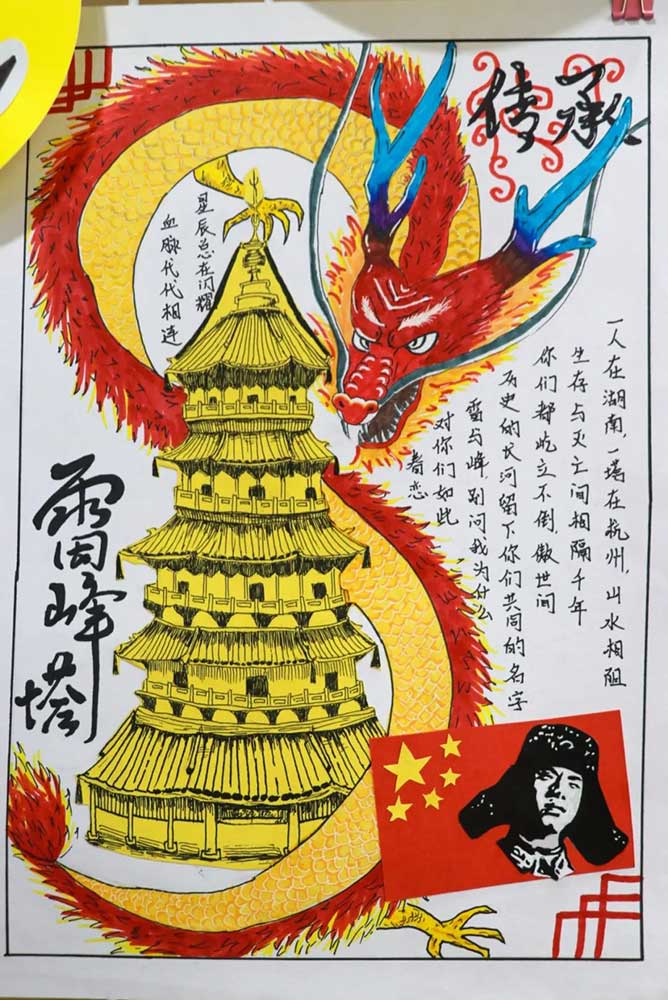 传承
一人在湖南,一塔在杭州,山水相阻
生存与灭亡间相隔千年
你们都屹立不倒,傲世间
历史的长河留下你们共同的名字
雷与峰,别问我为什么
对你们如此
眷恋
星辰总在闪耀
血脉代代相连
雷峰塔